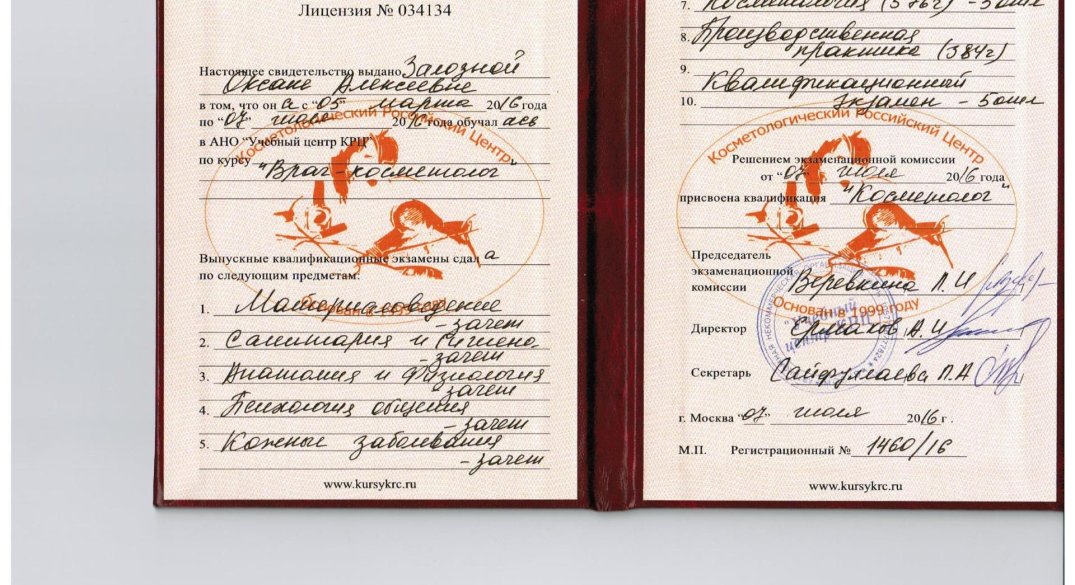 Лицензия № 034134
Настоящее свидетельство выдано Залозной
Оксане Алексеевне
в том, что он а с “05” марта 2016 года
по “07” июля 2016 года обучал ась
в АНО “Учебный центр КРЦ”
по курсу “Врач-косметолог”
Косметологический Российский Центр
Основан в 1999 году
Выпускные квалификационные экзамены сдал а
по следующим предметам:
1. Материаловедение
- зачет
2. Санитария и Гигиена
- зачет
3. Анатомия и Физиология
- зачет
4. Психология общения
- зачет
5. Кожные заболевания
- зачет
www.kursykrc.ru
7. Косметология (576г) - 5отл
8. Производственная
практика (384г)
9. Квалификационный
10. Экзамен - 5отл
Косметологический Российский Центр
Решением экзаменационной комиссии
от “07” июля 2016 года
присвоена квалификация “Косметолог”
Председатель
экзаменационной
комиссии Веревкина Л.И
Основан в 1999 году
Учебный
центр КРЦ
Директор Ермаков А.И
Секретарь Сайфулаева Л.А
г. Москва “07” июля 2016 г.
М.П. Регистрационный № 1460/16
www.kursykrc.ru